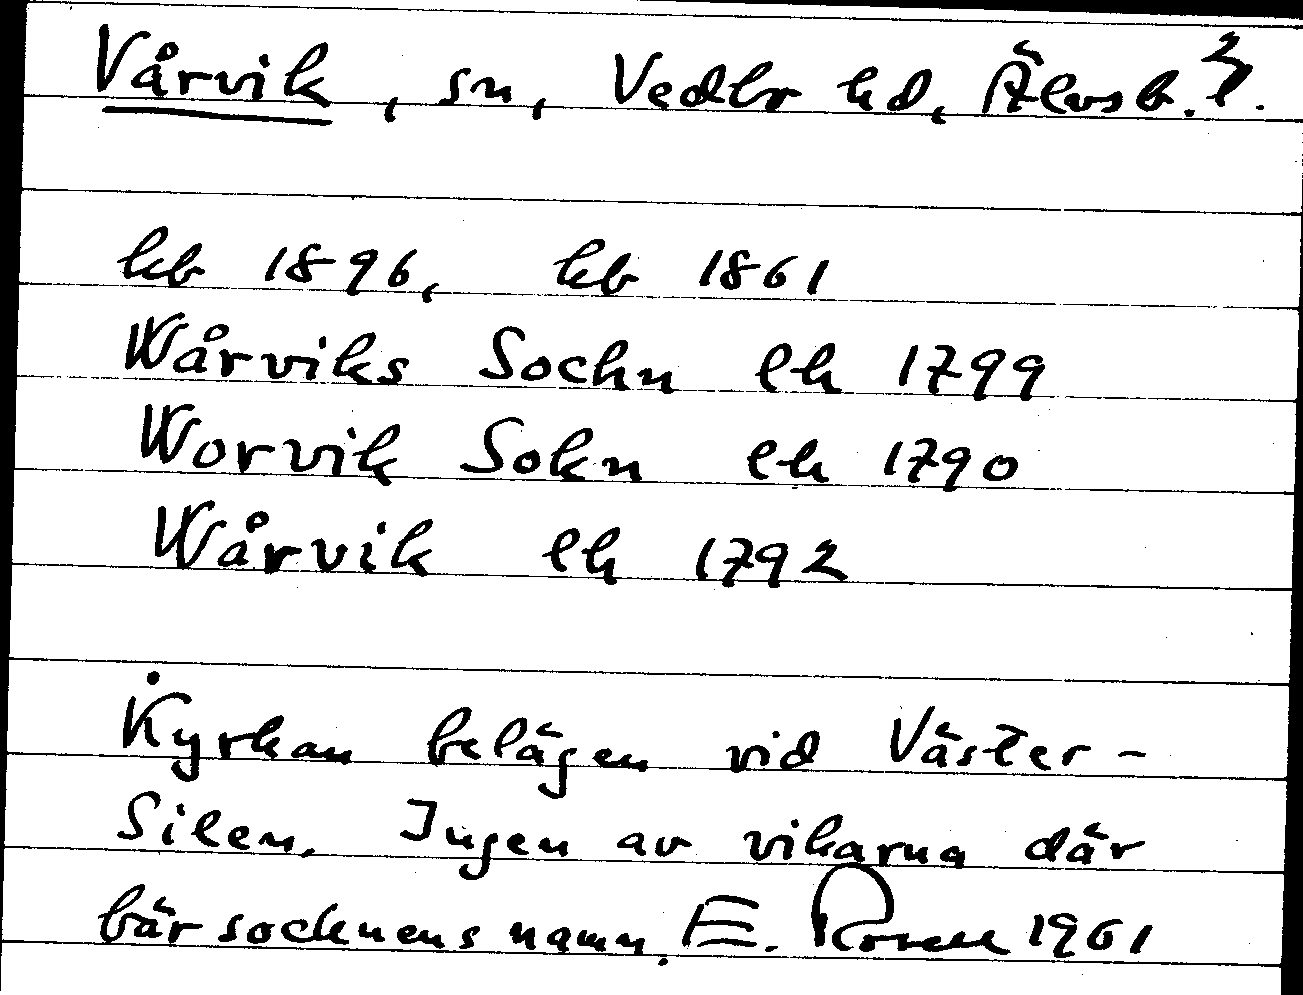 Vårvik, sn, Vedbo hd, Älvsb. l.
kb 1896, kb 1861
Wårviks Sochn ek 1799
Worvik Sokn ek 1790
Wårvik ek 1792
Kyrkan belägen vid Väster-
Silen. Ingen av vikarna där
bär socknens namn. E. Rosell 1961